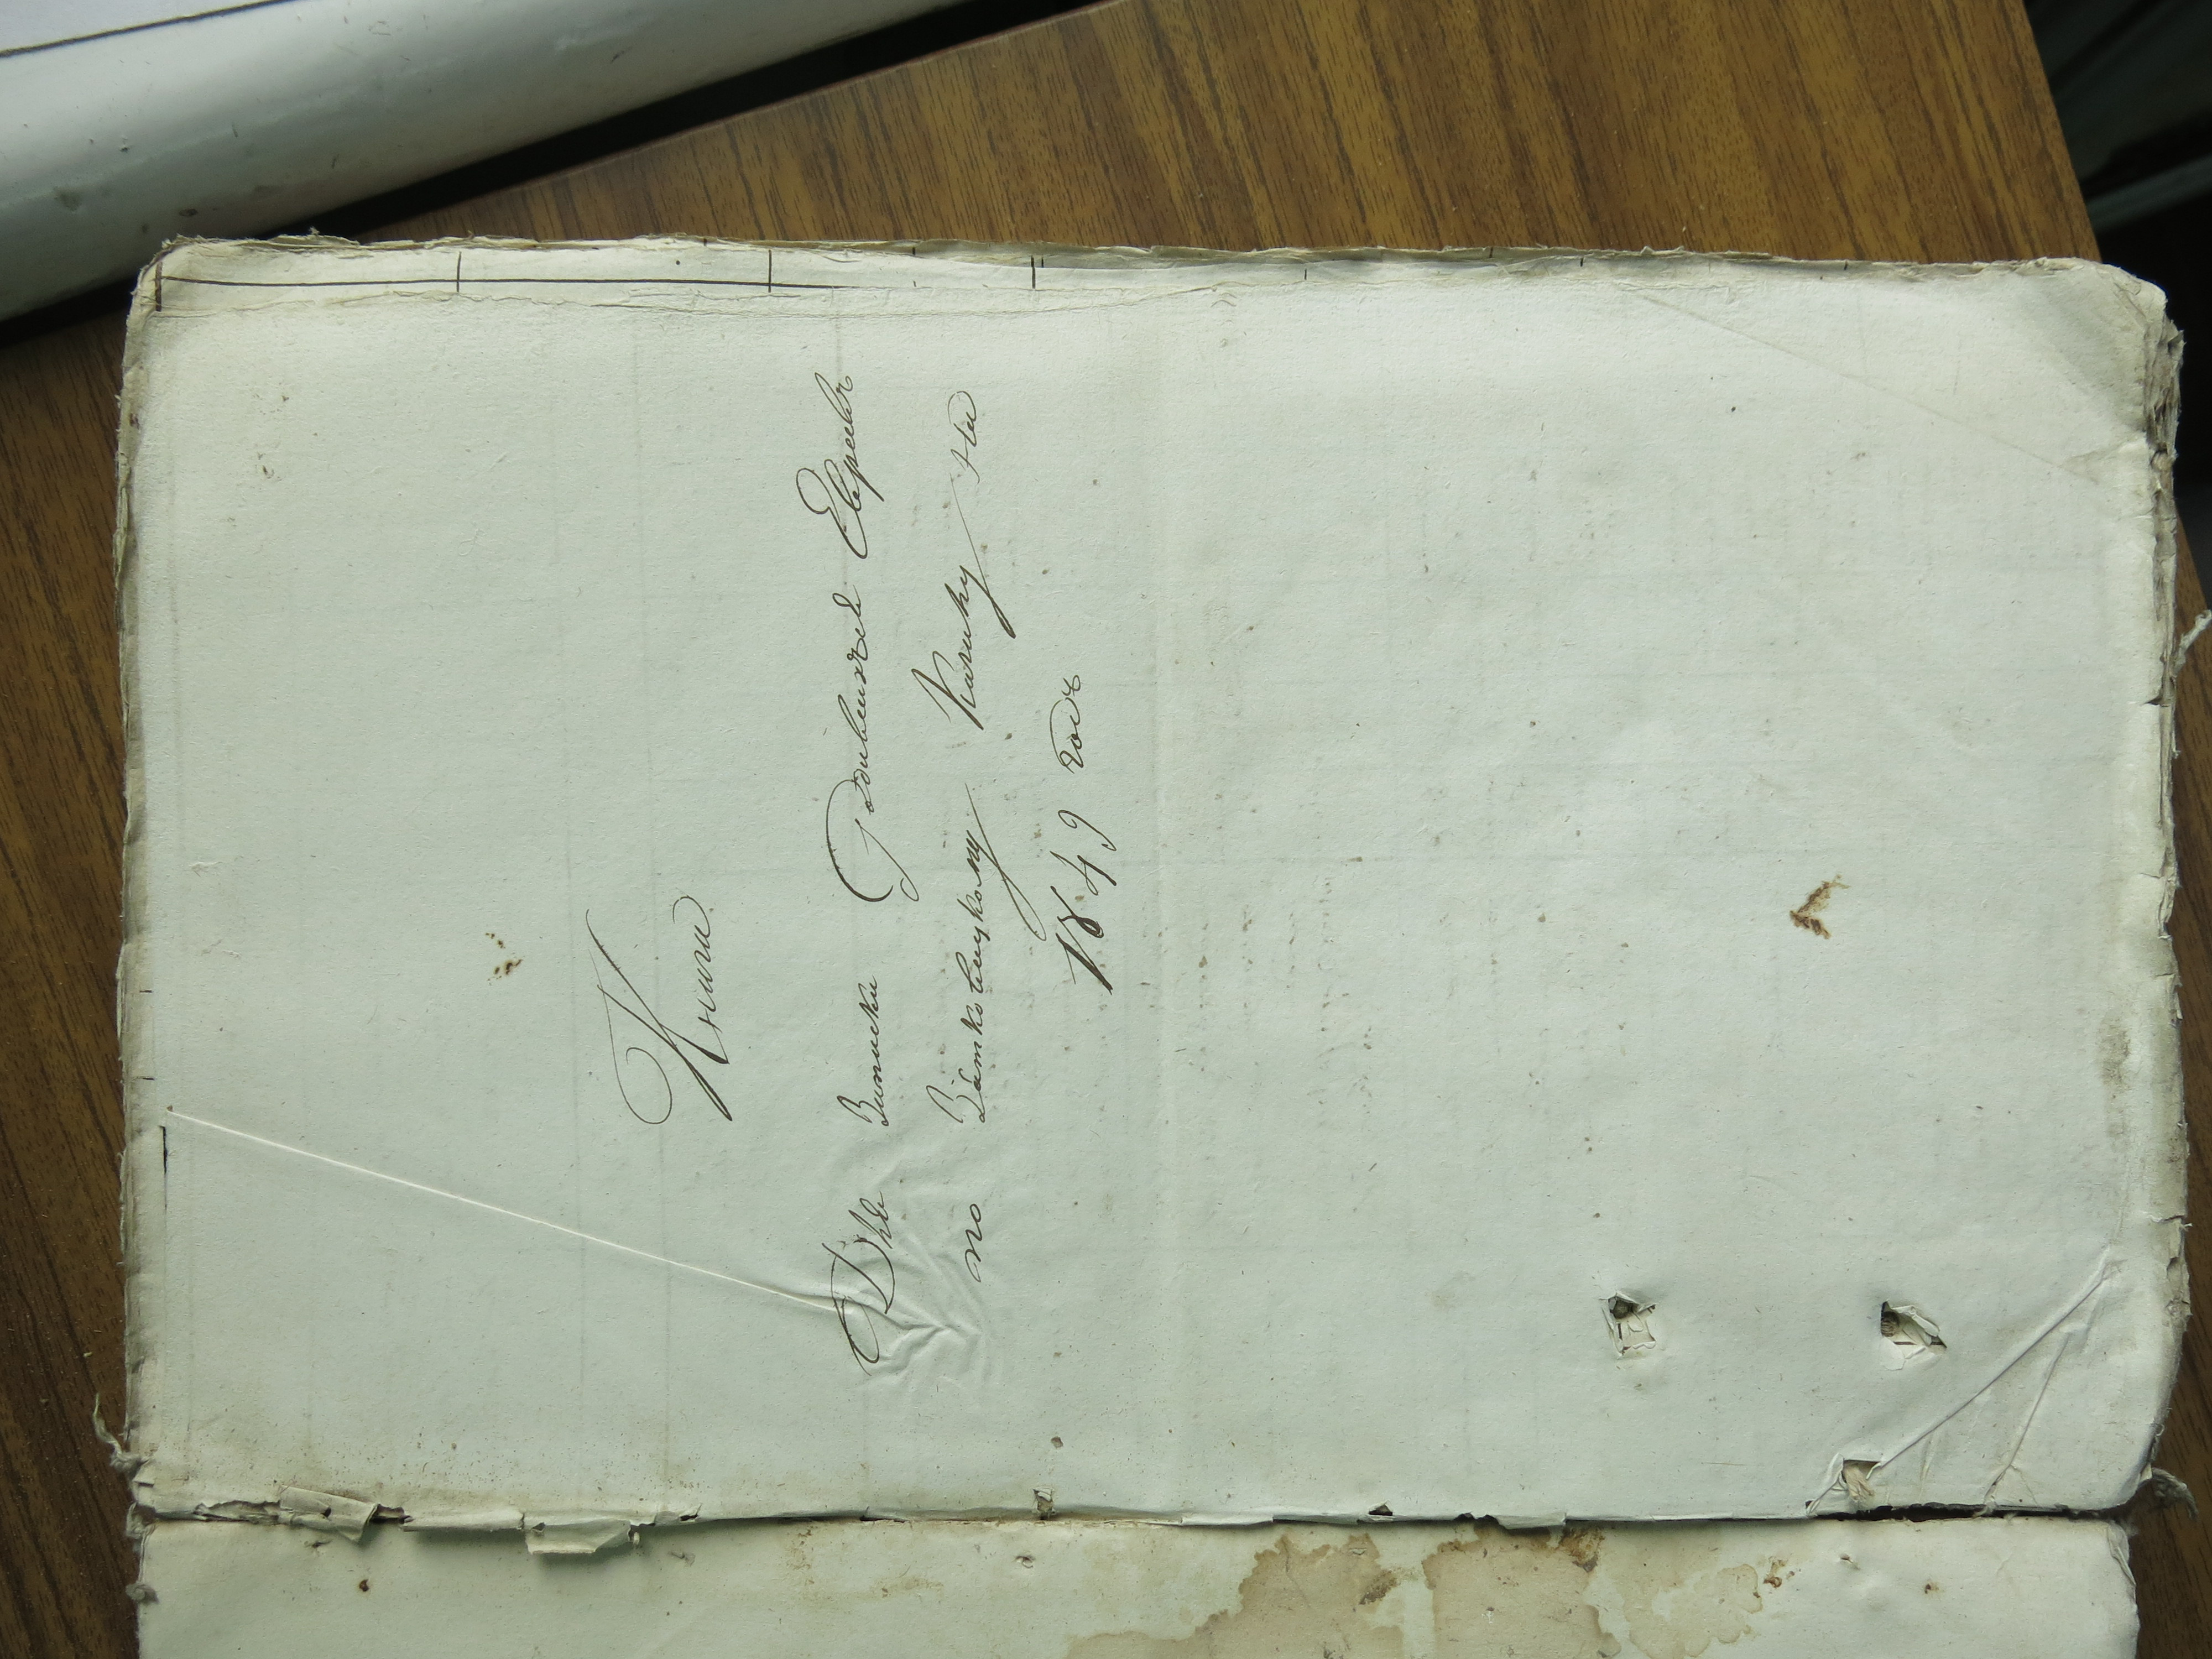 Книга
Для Записки Родившихся Евреевъ
по Замковецкому Кагалу на
1849 годъ